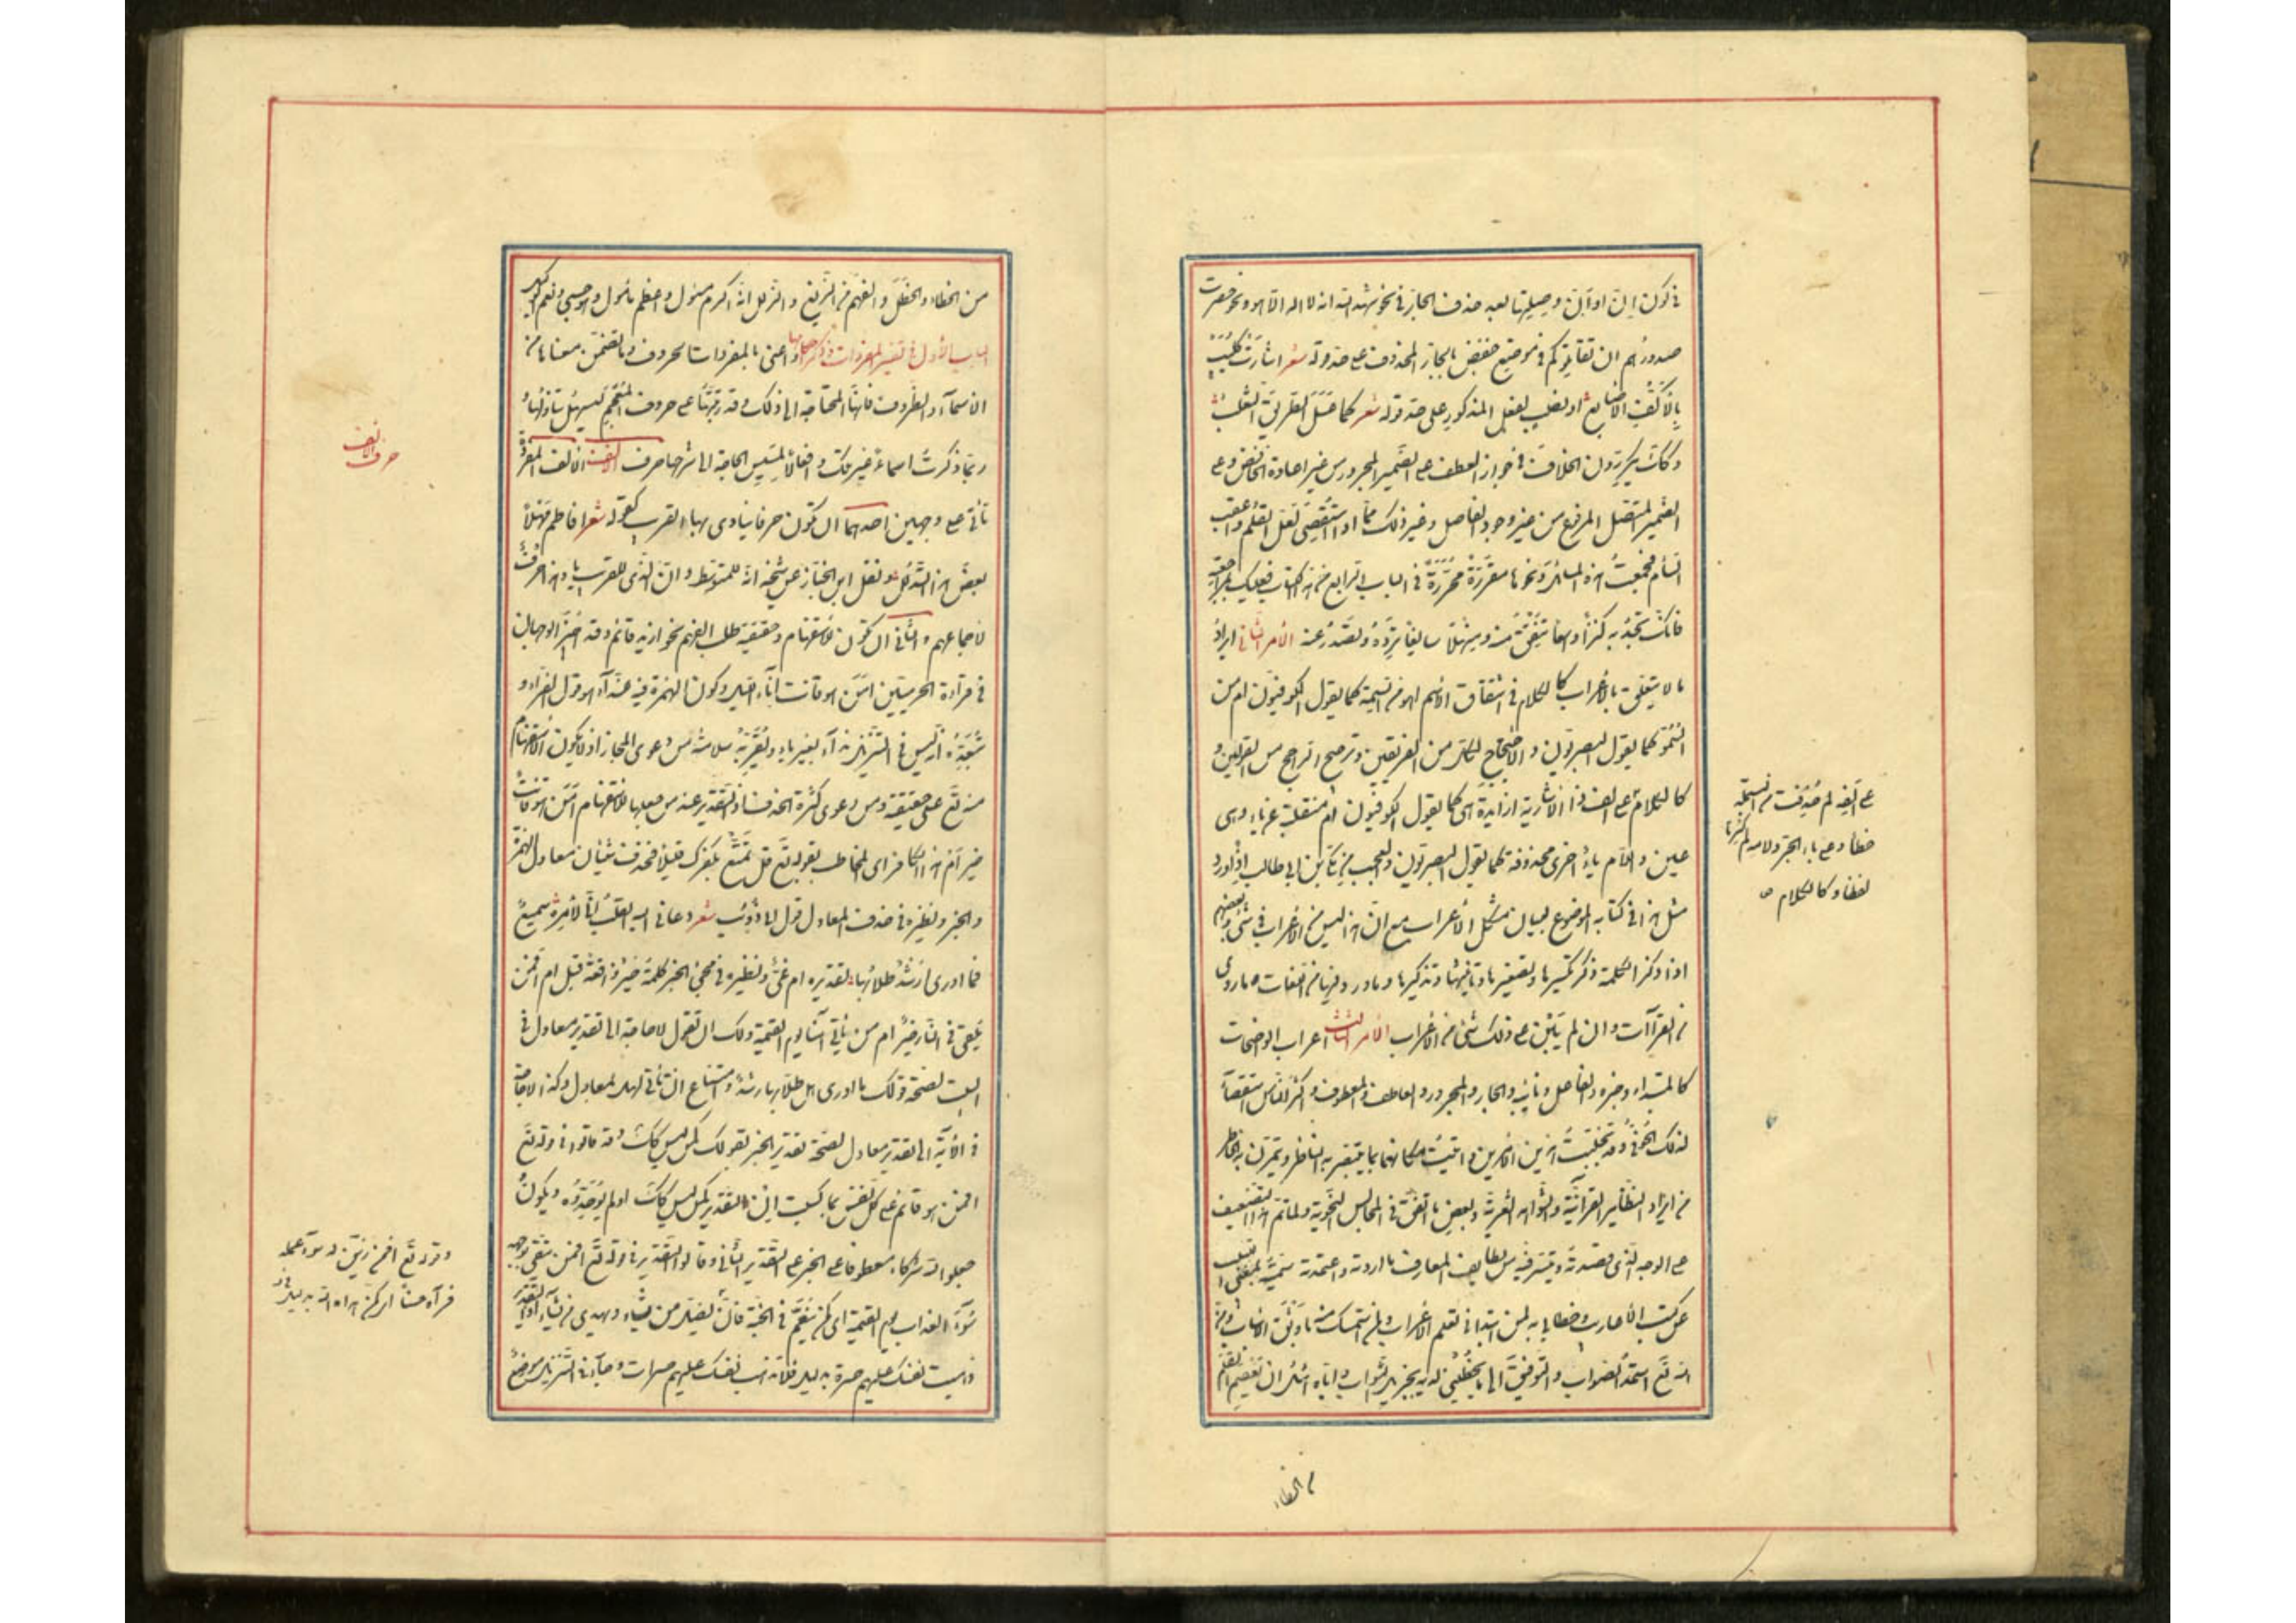 في كون انّ وانّ وصلتهما بعد حذف الجار في نحو شهد الله انه لا اله الا هو ونحو حصرت
صدورهم ان تقاتلوكم في موضع خفض بالجار المحذوف على حد قوله شعر اشارت كليب
بالاكف الاصابع او نصب بالفعل المذكور على حد قوله شعر كما عسل الطريق الثعلب
وكذلك يكررون الخلاف في جواز العطف على الضمير المجرور من غير اعادة الخافض وعلى
الضمير المتصل المرفوع من غير وجود الفاصل وغير ذلك مما اذا استقصى امل القلم واعقب
السأم فجمعت هذه المسائل ونحوها مقررة محررة في الباب الرابع من هذا الكتاب فعليك بمراجعته
فانك تجد به كنزا واسعا تنفق منه ومنهلا سائغا ترده وتصدر عنه الامر الثاني ايراد
ما لا يتعلق بالاعراب كالكلام في اشتقاق الاسم اهو من السمة كما يقول الكوفيون ام من
السمو كما يقول البصريون والاحتجاج لكل من الفريقين وترجيح الراجح من القولين و
كالكلام على الف ذا الاشارية ازايدة هي كما يقول الكوفيون ام منقلبة عن ياء وهي
عين واللام ياء اخرى محذوفة كما يقول البصريون والعجب من مكي بن ابي طالب اذ اورد
مثل هذا في كتابه الموضوع لبيان مشكل الاعراب مع ان هذا ليس من الاعراب في شيء وبعضهم
اذا ذكر الكلمة ذكر تكسيرها وتصغيرها وتانيثها وتذكيرها وما ورد فيها من اللغات وما روي
من القراآت وان لم يبن على ذلك شيء من الاعراب الامر الثالث اعراب الواضحات
كالمبتداء وخبره والفاعل ونائبه والجار والمجرور والعاطف والمعطوف واكثر الناس استقصاء
لذلك الحوفي وقد تجنبت هذين الامرين واتيت مكانهما بما يتبصر به الناظر ويتمرن به الخاطر
من ايراد النظاير القرآنية والشواهد الشعرية وبعض ما اتفق في المجالس النحوية ولما تم هذا التصنيف
على الوجه الذي قصدته وتيسر فيه من لطايف المعارف ما اردته واعتمدته سميته بمغني اللبيب
عن كتب الاعاريب وخطابي به لمن ابتدا في تعلم الاعراب ولمن استمسك منه باوثق الاسباب ومن
الله تع استمد الصواب والتوفيق الى ما يحظيني لديه بجزيل الثواب واياه اسئل ان يعصم القلم
على الفه لم حذفت من البسملة
خطا وعلى باء الجر ولامه لم كسرتا
لفظا وكالكلام صح
من الخطاء
من الخطاء والخطل والفهم من الزيغ والزلل انه اكرم مسئول واعظم مأمول وهو حسبي ونعم الوكيل
الباب الاول في تفسير المفردات وذكر احكامها واعنى بالمفردات الحروف وما تضمن معناها من
الاسمآء والظروف فانها المحتاجة الى ذلك وقد رتبتها على حروف المعجم ليسهل تناولها و
ربما ذكرت اسماء غير تلك وافعالا لمسيس الحاجة الى شرحها حرف الالف الالف المفردة
تاتى على وجهين احدهما ان تكون حرفا ينادى بها القريب كقوله شعر افاطم مهلا
بعض هذا التدلل ونقل ابن الخباز عن شيخه انه للمتوسط وان الذي للقريب يا وهذا خرق
لاجماعهم والثاني ان تكون للاستفهام وحقيقته طلب الفهم نحو ازيد قائم وقد اجيز الوجهان
في قرآءة الحرميين امن هو قانت آناء الليل وكون الهمزة فيه للندآء هو قول الفراء و
يبعده انه ليس في التنزيل ندآء بغير ياء ويقربه سلامته من دعوى المجاز اذ لا يكون الاستفهام
منه تع على حقيقته ومن دعوى كثرة الحذف اذ التقدير عند من جعلها للاستفهام امن هو قانت
خير ام هذا الكافر اى المخاطب بقوله تع قل تمتع بكفرك قليلا فحذف شيئان معادل الهمزة
والخبر ونظيره في حذف المعادل قول ابي ذؤيب شعر دعاني اليها القلب اني لامره سميع
فما ادرى ارشد طلابها تقديره ام غي ونظيره في مجيء الخبر كلمة خير واقعة قبل ام افمن
يلقى في النار خير ام من ياتي آمنا يوم القيمة ولك ان تقول لا حاجة الى تقدير معادل في
البيت لصحة قولك ما ادرى هل طلابها رشد وامتناع ان تاتي لهل بمعادل وكذا لا حاجة
في الآية الى تقدير معادل لصحة تقدير الخبر بقولك كمن ليس كذلك وقد قالوا في قوله تع
افمن هو قائم على كل نفس بما كسبت ان التقدير كمن ليس كذلك او لم يوحدوه ويكون
جعلوا لله شركاء معطوفا على الخبر على التقدير الثاني وقالوا التقدير في قوله تع افمن يتقى بوجهه
سوء العذاب يوم القيمة اى كمن ينعم في الجنة فان الله يضل من يشاء ويهدي من يشاء اى التقدير
ذهبت نفسك عليهم حسرة بدليل فلا تذهب نفسك عليهم حسرات وجآء في التنزيل موضع
حرف الالف
وقوله تع افمن زين له سوء عمله
فرآه حسنا اى كمن هداه الله بدليل